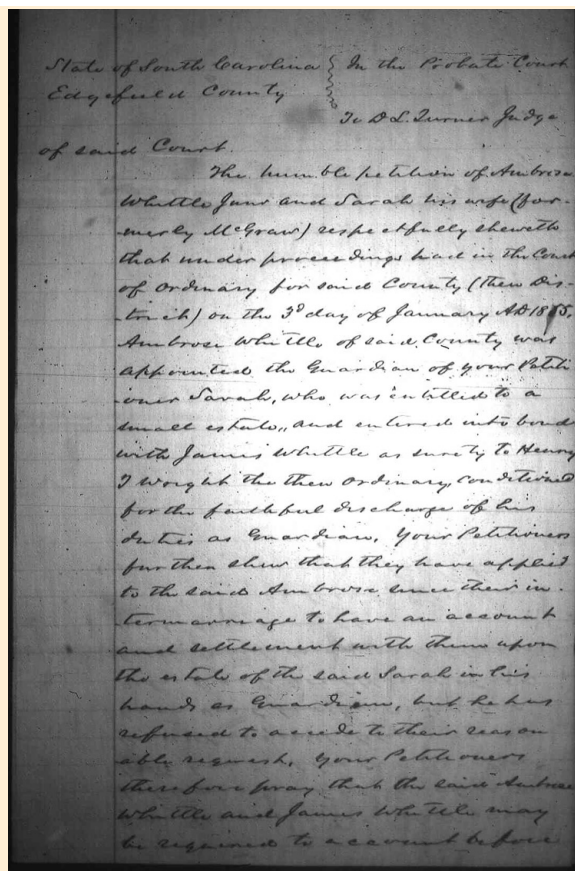 State of South Carolina } In the Probate Court
Edgefield County
To D L. Turner Judge
of said Court.
The humble petition of Ambrose
Whittle Junr and Sarah his wife (for-
-merly McGraw) respectfully sheweth
that under proceedings had in the Court
of Ordinary for said County (then Dis-
-trict) on the 3d day of January AD
Ambrose Whittle of said County was
appointed the Guardian of your Petiti
oner Sarah, who was entitled to a
small estate, and entered into bond
with James Whittle as surety to Henry
T Wright the then Ordinary conditioned
for the faithful discharge of his
duties as Guardian. Your Petitioners
further shew that they have applied
to the said Ambrose since their in-
termarriage to have an account
and settlement with them upon
the estate of the said Sarah in his
hands as Guardian, but he has
refused to accede to their reason
able request. Your Petitioners
therefore pray that the said Ambrose
Whittle and James Whittle may
be required to account before